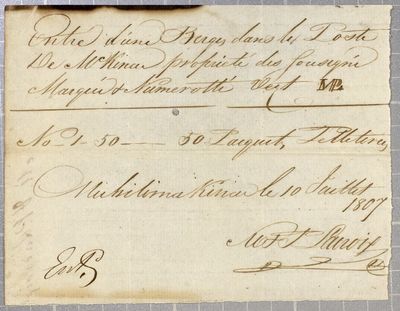 Entré d'une Berge dans le Poste
De McKinac propriété des Sousigné
Marquée & Numerotté
No 1 50 — 50 Pacquets Pelleteries
Michilimakinac le 10 Juillet
1807
Entd